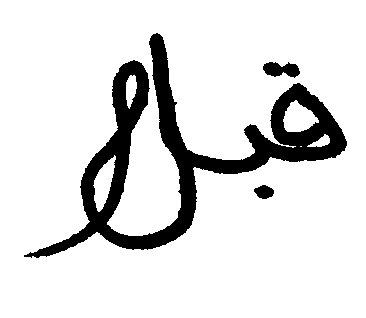 قبل